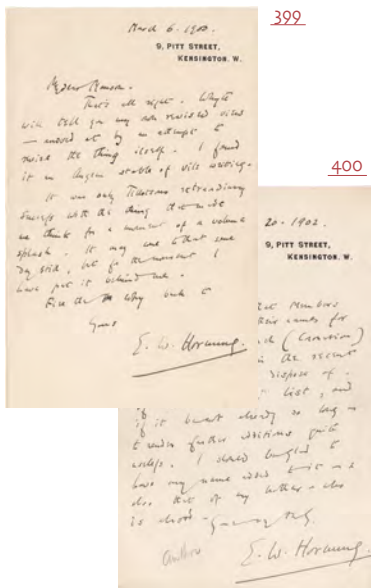 399
March 6. 1902.
9, PITT STREET,
KENSINGTON. W.
My dear
That's all right. Whyte
will tell you my own revised views
— moved at by an attempt to
revise the thing itself. I found
it an Augean stable of vile writing.
It was only
success with the thing that made
me think for a moment of a volume
splash. It may come to that some
day still, but for the moment I
have put it behind me.
back to
Yours
E. W. Hornung.
400
20. 1902.
9, PITT STREET,
KENSINGTON. W.
Members
their names for
(
in the recent
dispose of.
list, and
if
if it be not already so long as
to render further additions quite
useless. I should be glad to
have my name added to it as
also that of my brother - who
is abroad -
Author
E. W. Hornung.